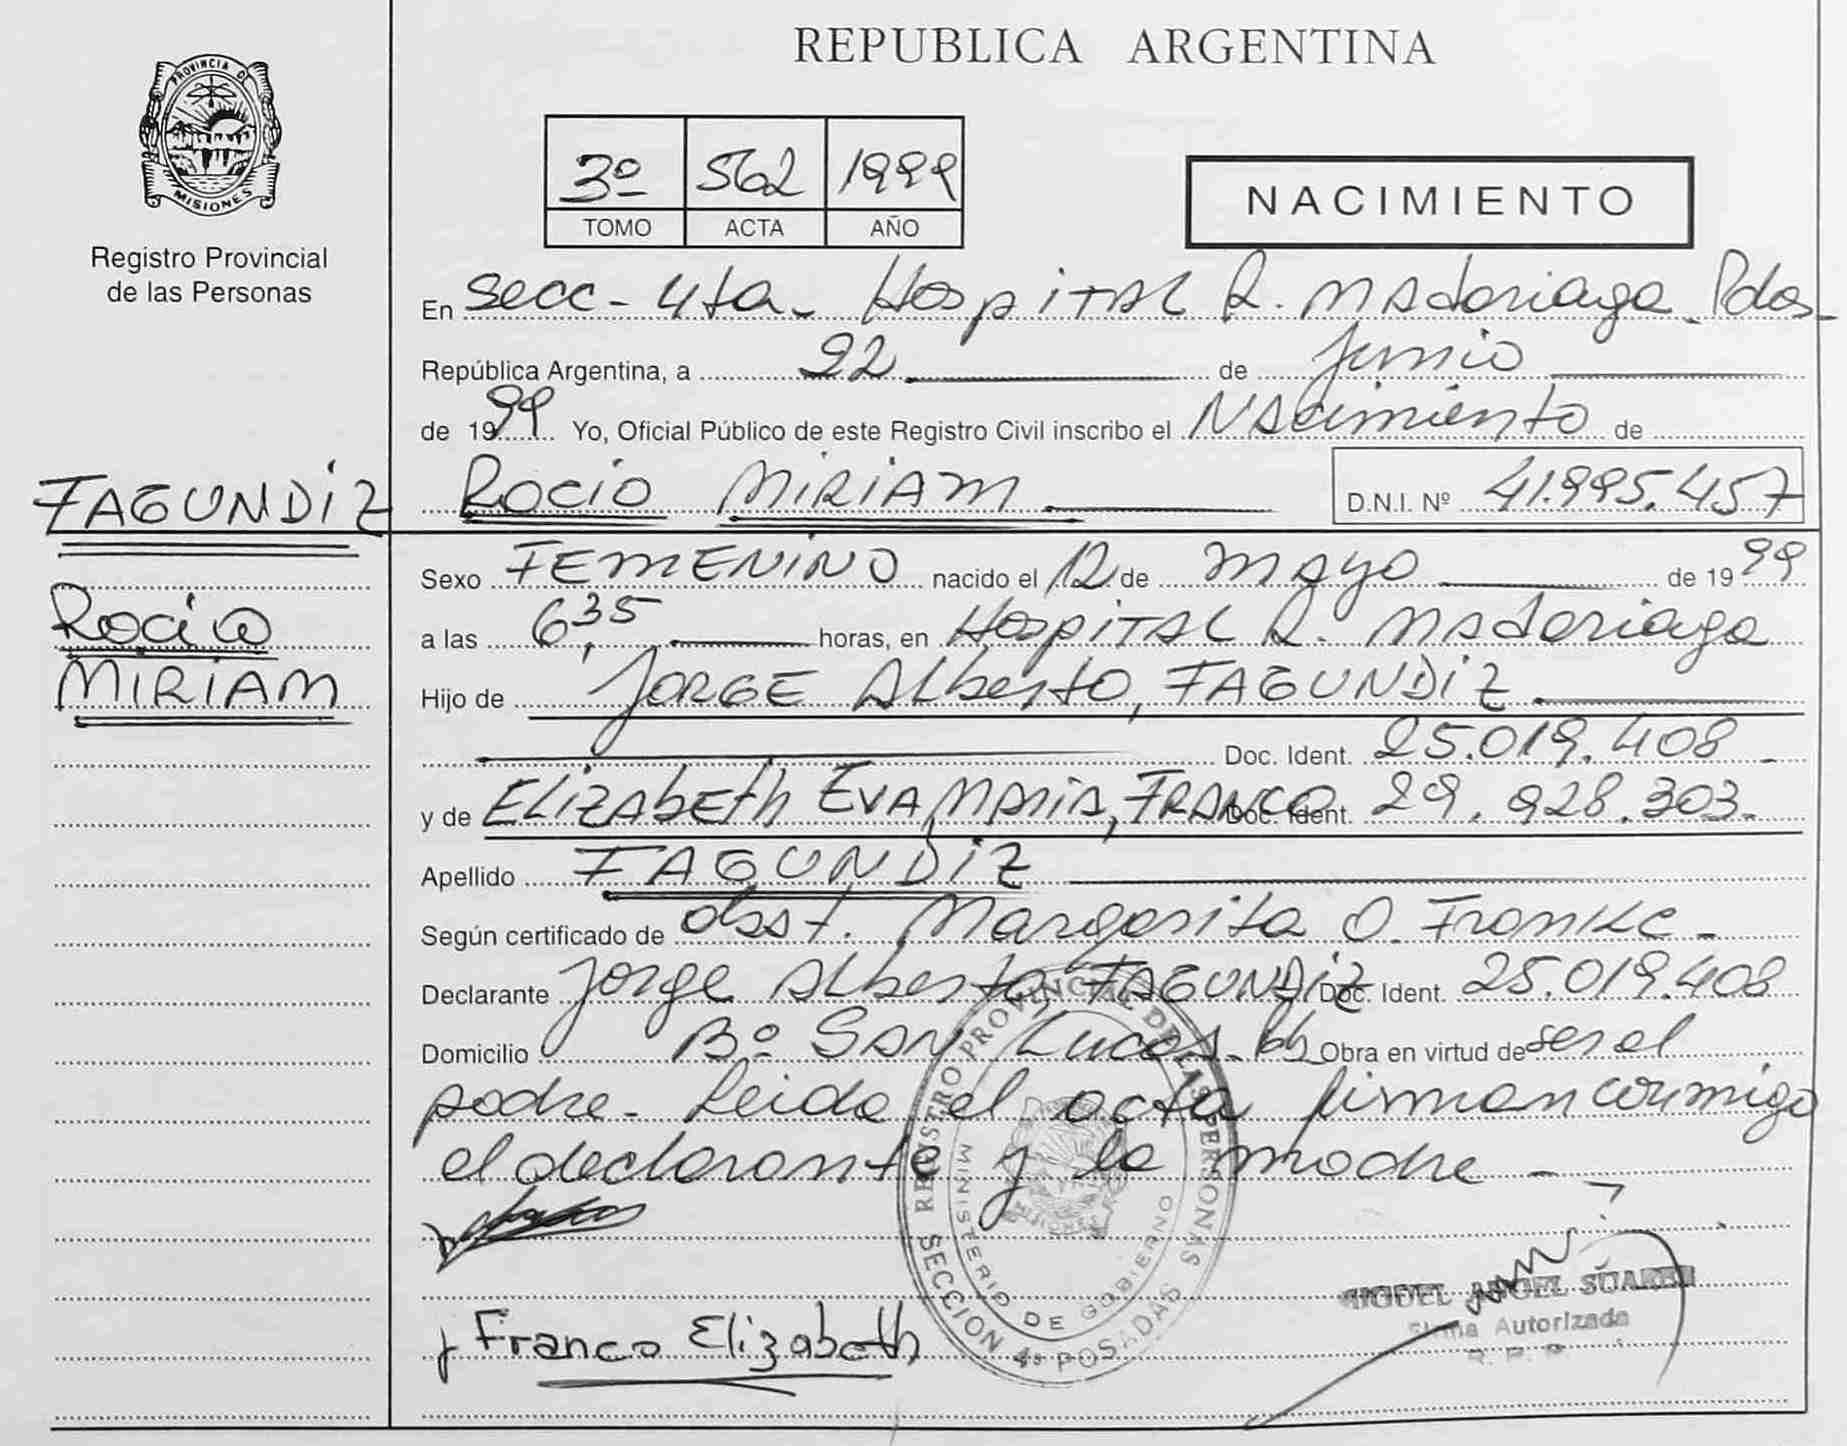 REPUBLICA ARGENTINA
PROVINCIA D
MISIONES
Registro Provincial
de las Personas
3º 562 1999
TOMO ACTA AÑO
NACIMIENTO
En Secc- 4ta- Hospital R. Madariaga. Pdas-
República Argentina, a 22 de Junio
de 1999 Yo, Oficial Público de este Registro Civil inscribo el Nacimiento de
FAGUNDIZ ROCIO MIRIAM D.N.I. Nº 41.995.457
Sexo FEMENINO nacido el 12 de mayo de 1999
Rocio
a las 6,35 horas, en Hospital R. Madariaga
MIRIAM
Hijo de JORGE Alberto, FAGUNDIZ
Doc. Ident. 25.019.408
y de ELIZAbEth EVA MARIA, FRANCO Doc. Ident. 29.928.303.
Apellido FAGUNDIZ
Según certificado de obst. Margarita O. Franke-
Declarante Jorge Alberto FAGUNDIZ Doc. Ident. 25.019.408
Domicilio Bº San Lucas- Obra en virtud de ser el
padre- Leida el acta firman conmigo
el declarante y la madre-
Franco Elizabeth
REGISTRO PROVINCIAL DE LAS PERSONAS
MINISTERIO DE GOBIERNO
SECCION 4ª POSADAS
MISIONES
MIGUEL ANGEL SUAREZ
Firma Autorizada
R. P. P.